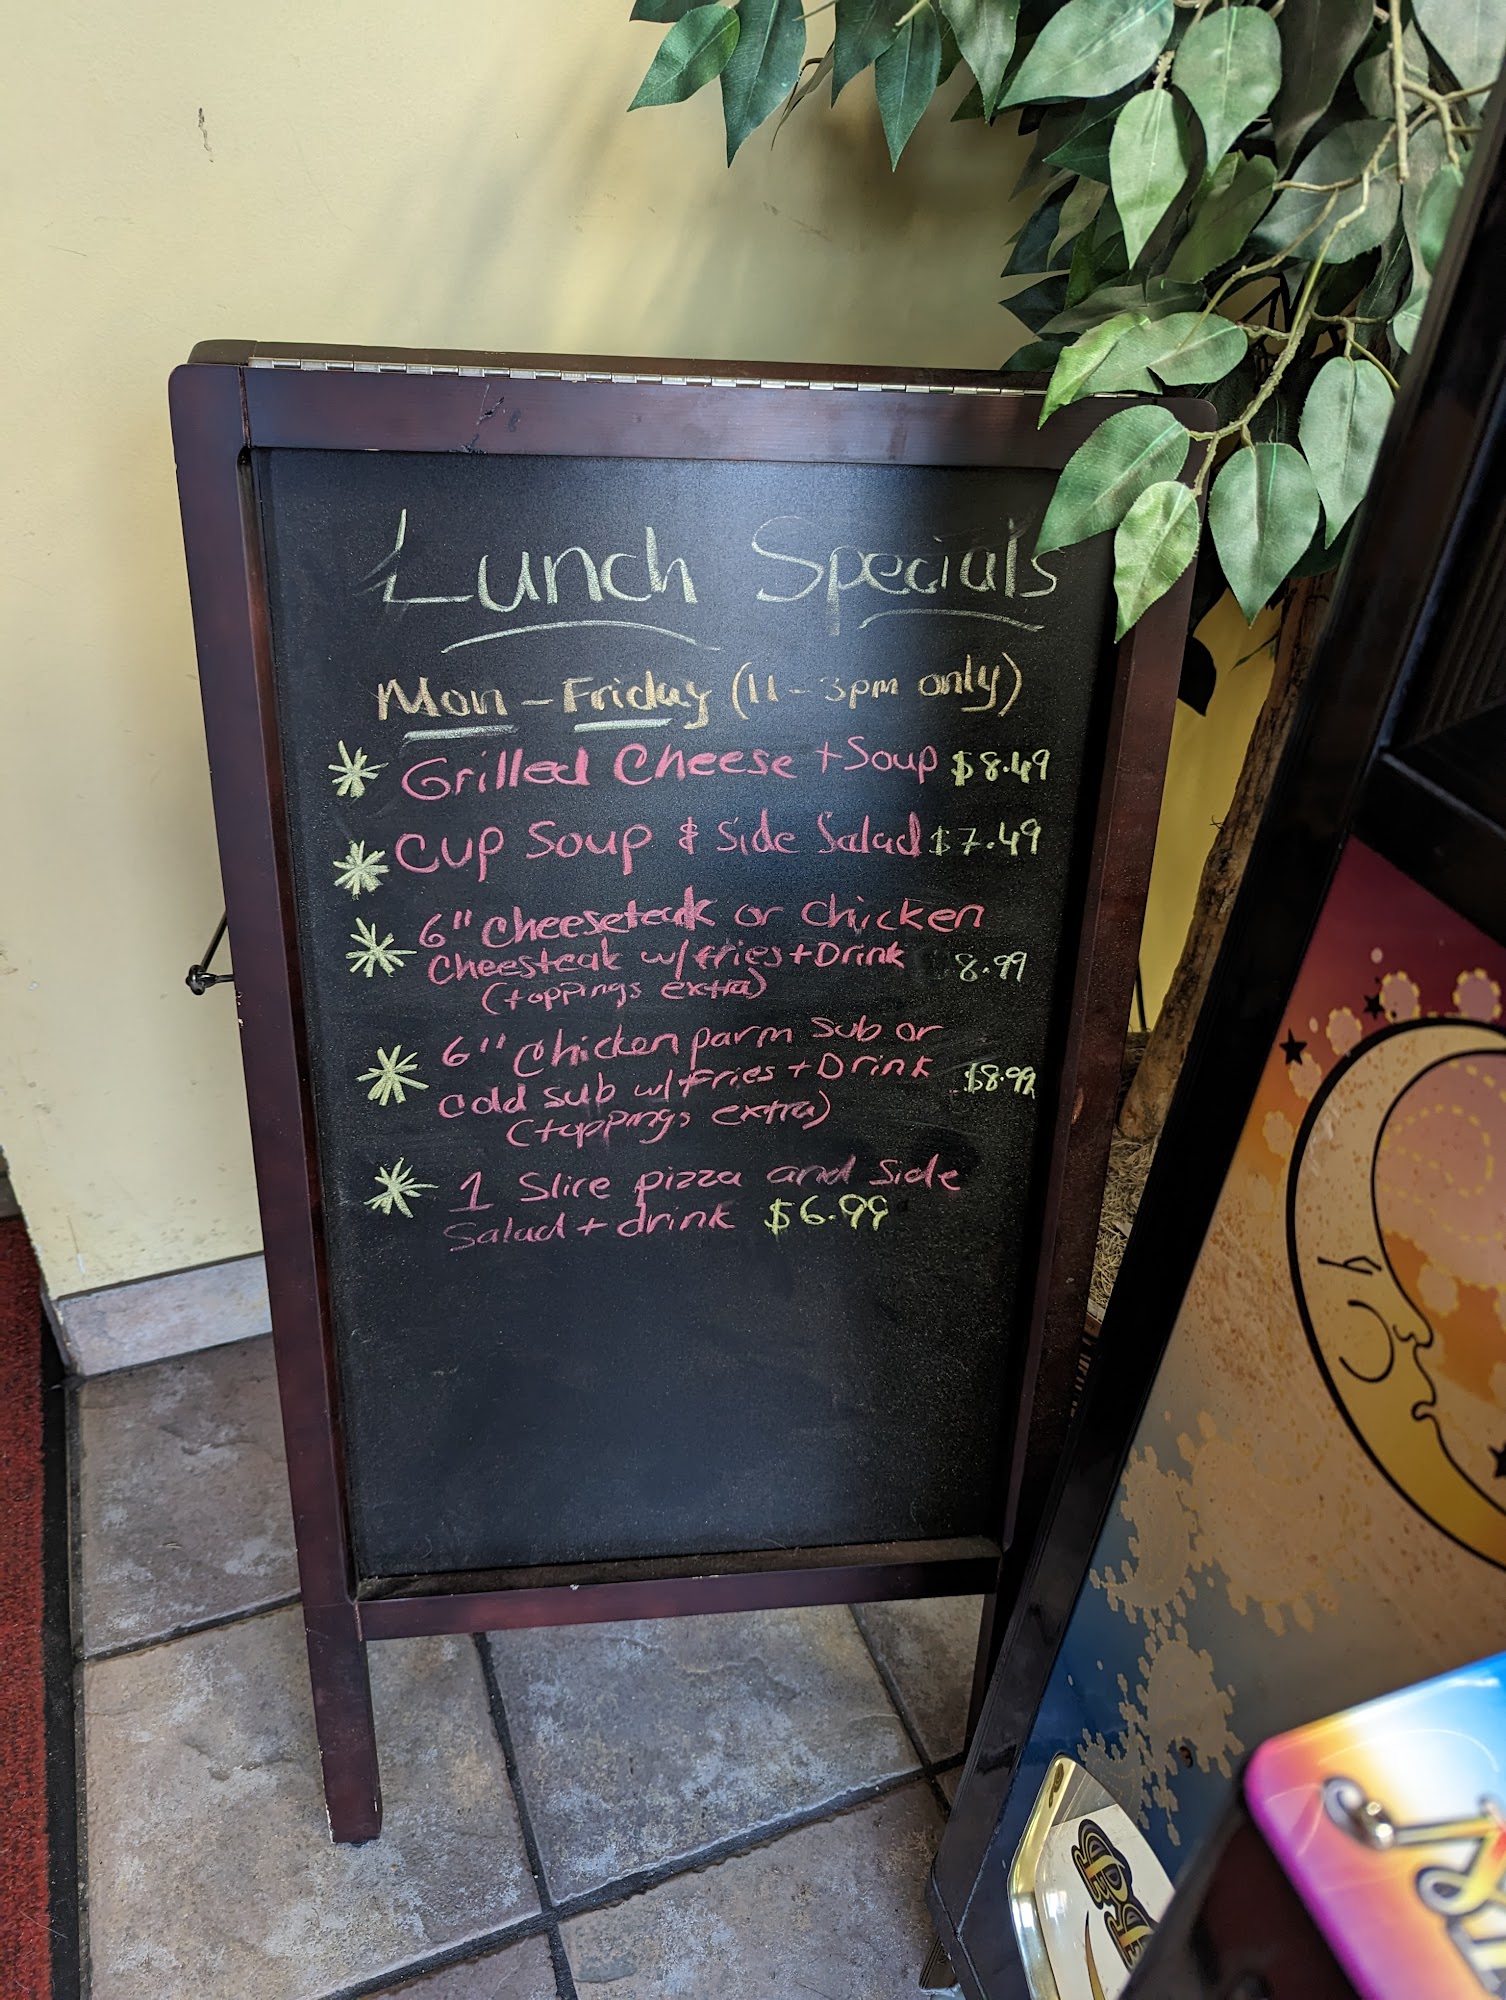 Lunch Specials
Mon - Friday (11 - 3pm only)
Grilled Cheese + Soup $8.49
Cup Soup & Side Salad $7.49
6" Cheeseteak or Chicken
Cheesteak w/ fries + Drink 8.99
(toppings extra)
6" Chicken parm sub or
Cold sub w/ Fries + Drink $8.99
(toppings extra)
1 Slice pizza and Side
Salad + drink $6.99